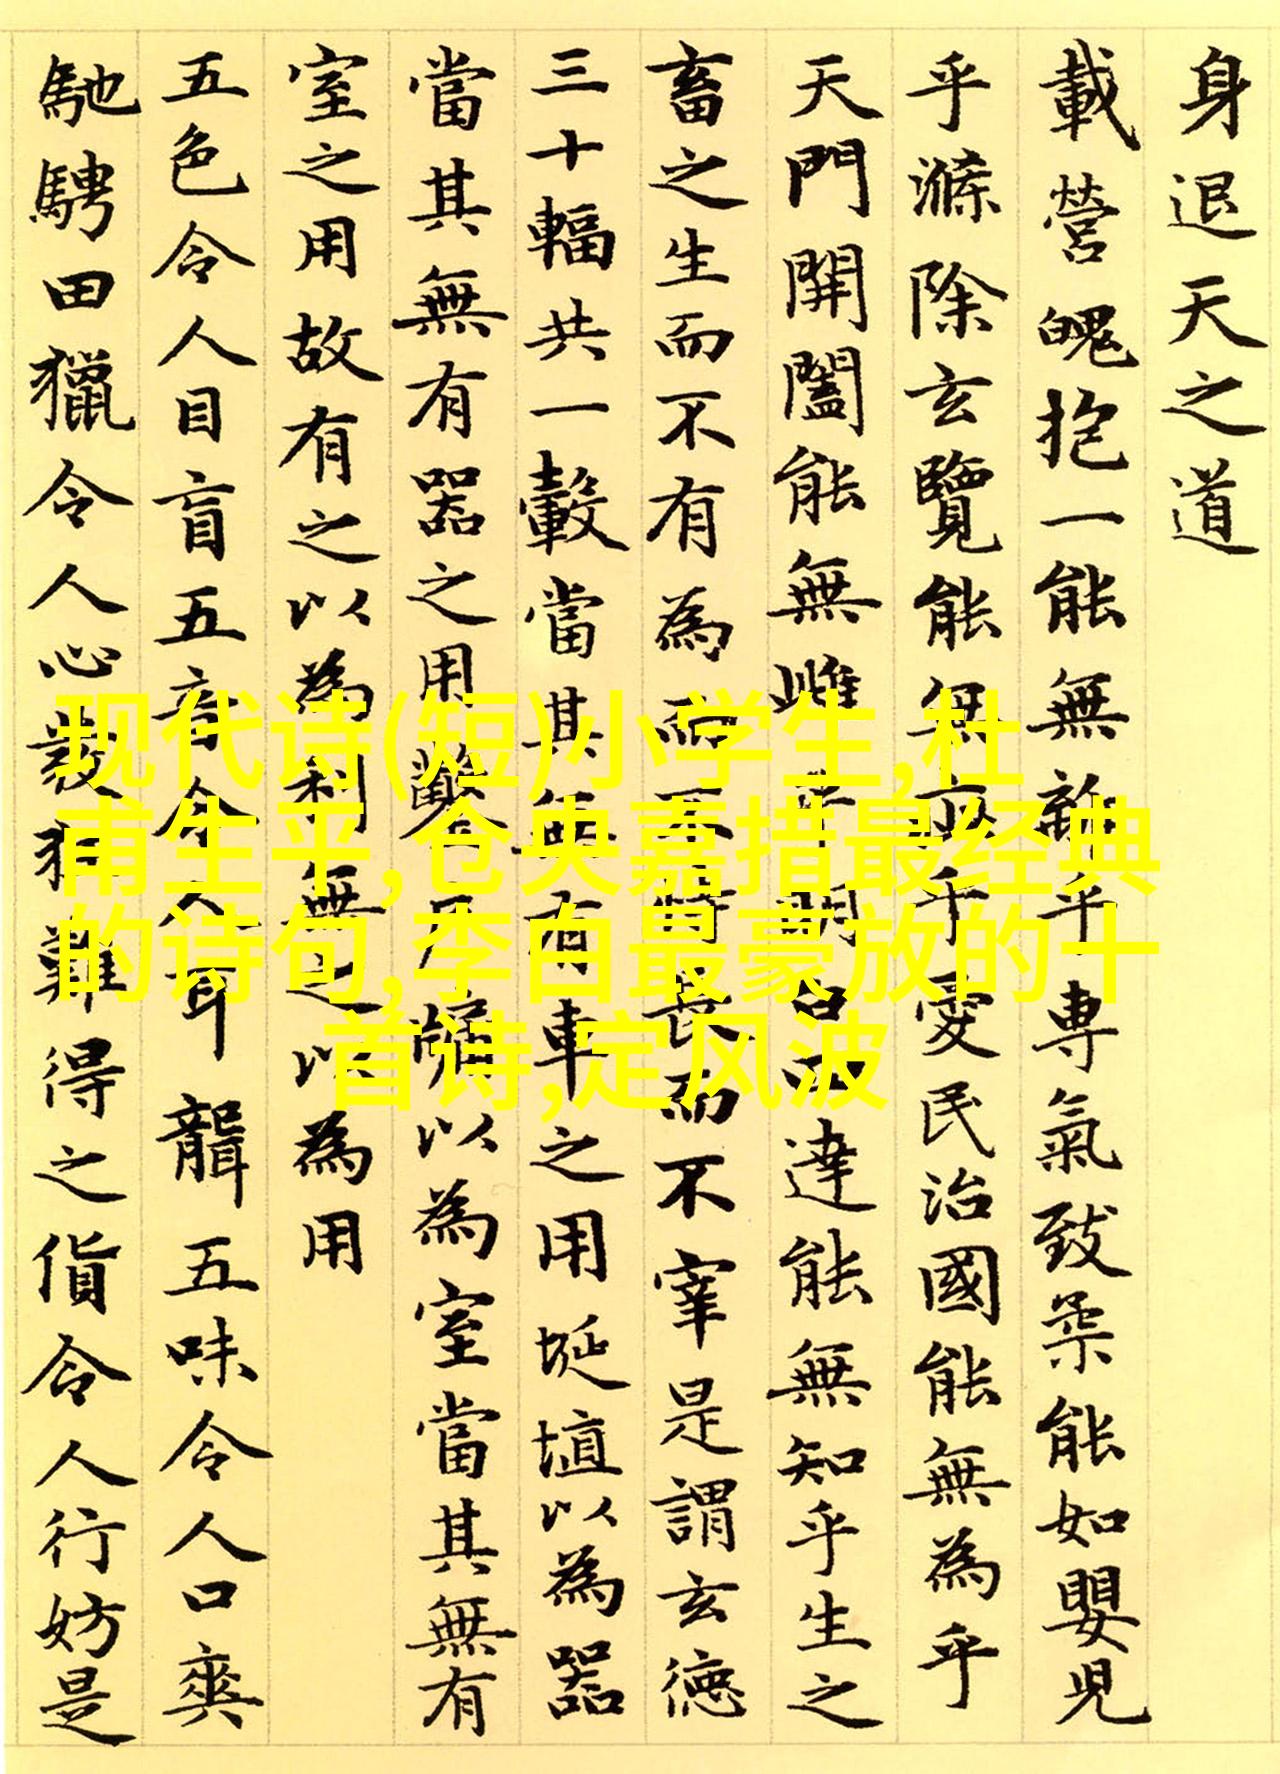 身退天之道
載營魄抱一能無離乎專氣致柔能如嬰兒
乎滌除玄覽能無疵乎愛民治國能無為乎
天門開闔能無雌乎明白四達能無知乎生之
畜之生而不有為而不恃長而不宰是謂玄德
三十輻共一轂當其無有車之用埏埴以為器
當其無有器之用鑿戶牖以為室當其無有
室之用故有之以為利無之以為用
五色令人目盲五音令人耳聾五味令人口爽
馳騁田獵令人心發狂難得之貨令人行妨是
现代诗(短)小学生,杜
甫生平,仓央嘉措最经典
的诗句,李白最豪放的十
首诗,定风波